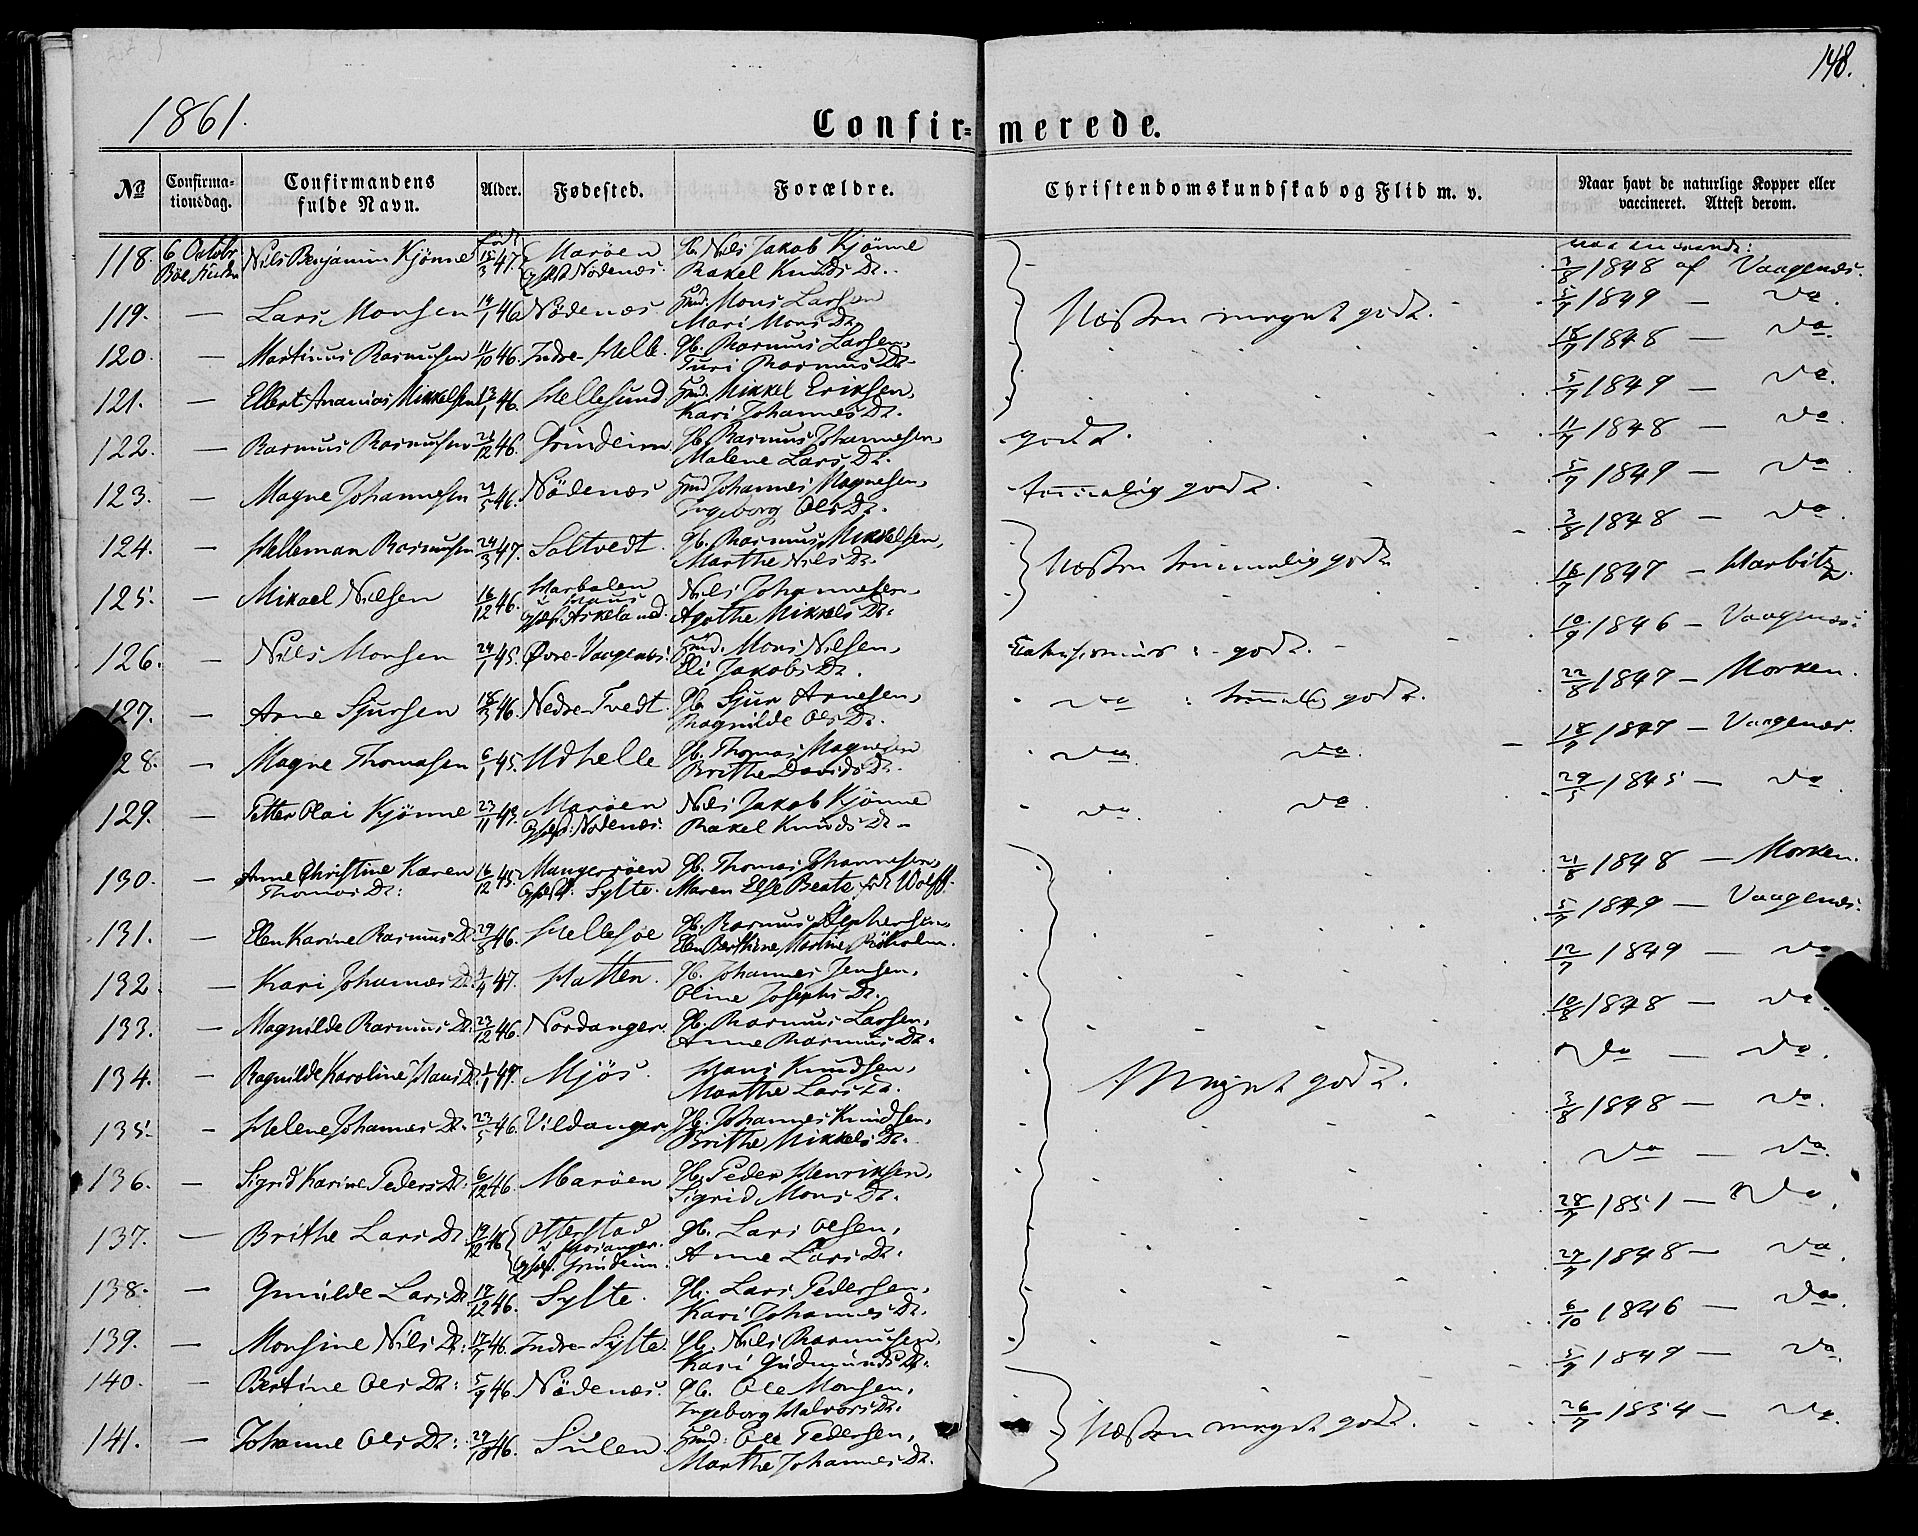 148.
1861.
Confir- merede.
No
Confirma-
tionsdag.
Confirmandens
fulde Navn.
Alder.
Fødested.
Forældre.
Christendomskundskab og Flid m. v.
Naar havt de naturlige Kopper eller
vaccineret. Attest derom.
118. 6 Octobr Nils Benjamin Kjønne født 15/3 47. Marøen Gb. Nils Jakob Kjønne 3/8 1848 af Vaagenæs.
Bøe Nødenæs. Rakel Knuds Dr.
119. — Lars Monsen 19/1 46 Nødenæs Huusmd. Mons Larsen Næsten meget godt. 5/7 1849 — do.
Mari Mons Dr.
120. — Martinus Rasmusen 11/10 46. Indre-Helle. Gb. Rasmus Larsen, 18/7 1848 — do.
Turi Rasmus Dr.
121. — Elbert Ananias Mikkelsen 13/1 46. Hellesund Mikkel Eriksen, 5/7 1849 — do.
Kari Johannes Dr.
122. — Rasmus Rasmusen 21/12 46. Grindeim Gb. Rasmus Johannesen, godt. 11/7 1848 — do
Malene Lars Dr.
123. — Magne Johannesen 21/5 46. Nødenæs Johannes Magnesen, temmelig godt. 5/7 1849 — do
Ingeborg Ols Dr.
124. — Helleman Rasmusen 24/3 47. Soltvedt. Gb. Rasmus Mikkelsen, Næsten temmelig godt 3/8 1848 — do.
Marthe Nils Dr.
125. — Mikael Nielsen 16/12 46. Marbolen Nils Johannesen, 16/7 1847 — Harbitz.
i Haus
Askeland. Agathe Mikkels Dr.
126. — Nils Monsen 24/1 45. Øvre-Vaagenæs. Mons Nilsen, Catechismus: godt. 10/9 1846 — Vaagenæs.
Eli Jakobs Dr.
127. — Arne Sjursen 18/3 46. Nedre-Tvedt. Gb. Sjur Arnesen, do : temmelig godt. 22/8 1847 — Morken.
Ragnilde Ols Dr.
128. — Magne Thomasen 6/1 45. Udhelle Gb. Thomas Magnesen do. do. 18/7 1847 — Vaagenæs.
Brithe Davids Dr.
129. — Petter Olai Kjønne 23/11 43. Marøen Nils Jakob Kjønne do. do. 29/5 1845 — do
Nødenæs. Rakel Knuds Dr.
130. — Anne Christine Karen 16/12 45. Mangerøen Gb. Thomas Johannesen, 21/8 1848 — Morken.
Thomas Dr: Sylte. Maren Else Beate f. Wolff.
131. — Elen Karine Rasmus Dr 29/8 46. Hellesøe Gb. Rasmus Stephensen, 5/7 1849 — Vaagenæs.
Elen Berthine Martine
132. — Kari Johannes Dr. 1/4 47. Hatten. Gb. Johannes Jensen, 12/7 1849 — do
Oline Josephs Dr.
133. — Magnilde Rasmus Dr. 23/12 46. Nordanger. Gb. Rasmus Larsen, 10/8 1848 — do.
Anne Rasmus Dr.
134. — Ragnilde Karoline Hans Dr. 1/1 47. Mjøs. Hans Knudsen, Meget godt. do — do.
Marthe Lars Dr.
135. — Helene Johannes Dr. 23/5 46. Vildanger. Gb. Johannes Knudsen, 3/8 1848 — do.
Brithe Mikkels Dr.
136. — Sigrid Karine Peders Dr. 6/12 46. Marøen Gb. Peder Henriksen, do — do.
Sigrid Mons Dr.
137. — Brithe Lars Dr 19/12 46 Otterstad Gb. Lars Olsen, 28/7 1851 — do.
i Hosanger.
Grindeim. Anne Lars Dr.
138. — Gunilde Lars Dr 17/12 46. Sylte. Gb. Lars Pedersen, 27/7 1848 — do
Kari Johannes Dr.
139. — Monsine Nils Dr: 17/7 46. Indre-Sylte. Gb. Nils Rasmusen, 6/10 1846 — do.
Kari Gudmunds Dr.
140. — Bertine Ols Dr: 5/9 46. Nødenæs. Gb. Ole Monsen, 5/7 1849 — do.
Ingeborg Halvors Dr.
141. — Johanne Ols Dr: 29/10 46. Sulen Ole Pedersen, Næsten meget godt. 26/7 1854 — do.
Marthe Johannes Dr.